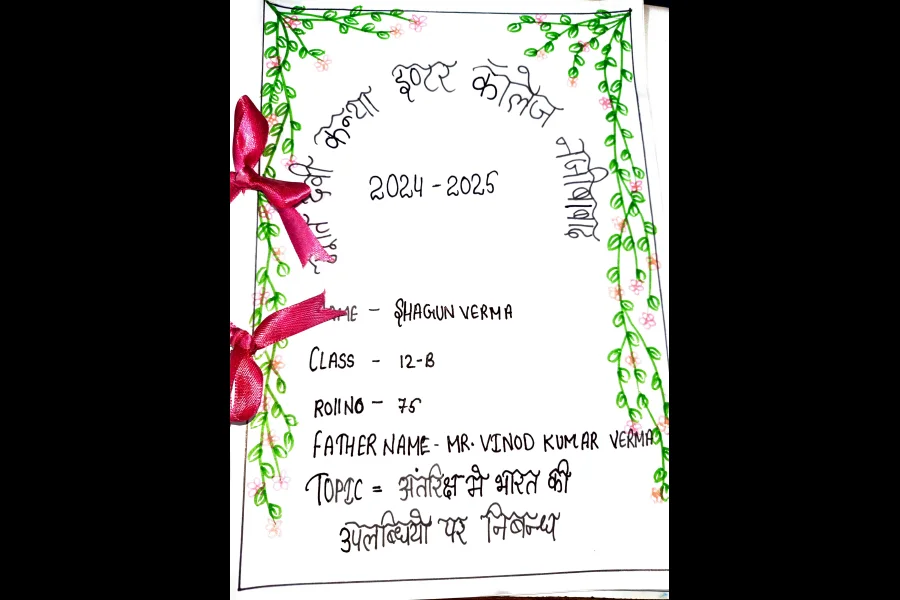 कन्या इण्टर कॉलेज नजीबाबाद
2024-2025
NAME - SHAGUN VERMA
CLASS - 12-B
Roll NO - 75
FATHER NAME - MR. VINOD KUMAR VERMA
TOPIC = अंतरिक्ष मे भारत की
उपलब्धियो पर निबन्ध